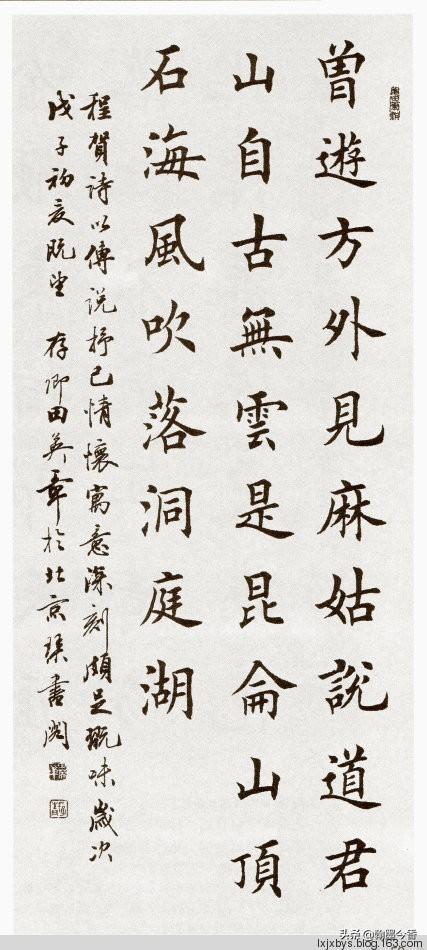 曾遊方外見麻姑說道君
山自古無雲是昆侖山頂
石海風吹落洞庭湖
程賀詩以傳說抒己情懷寓意深刻頗足玩味歲次
戊子初夏既望 存卿田英章於北京琹書閣
头条@翰墨今香
lxjxbys.blog.163.com